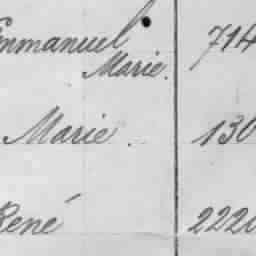 Emmanuel 714
Marie.
Marie. 130
René 2220